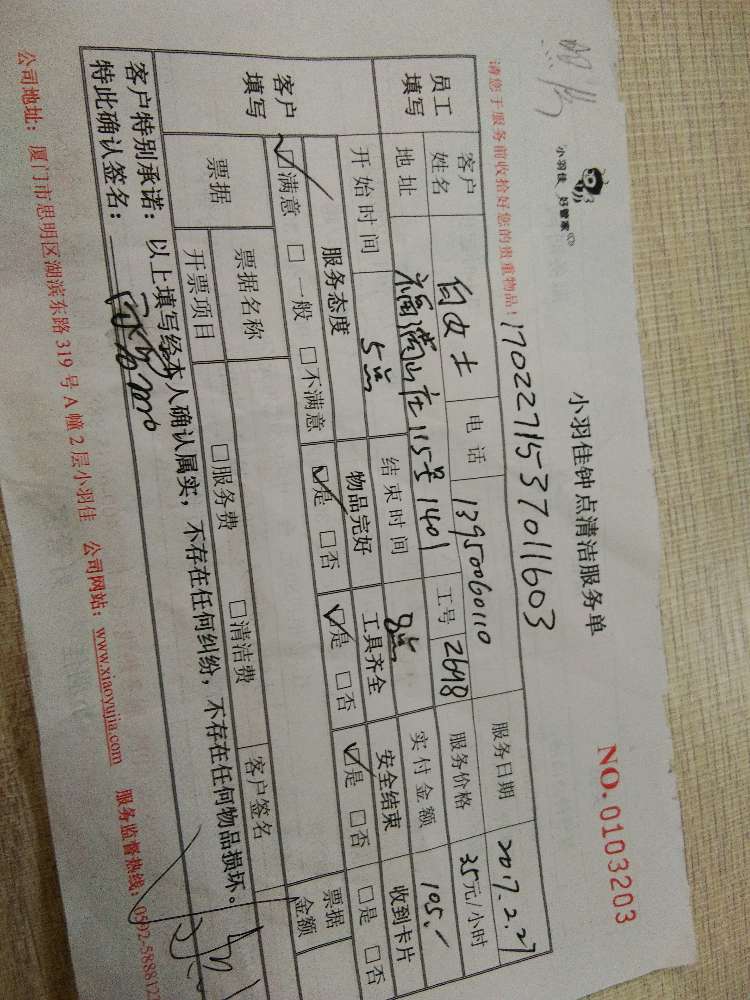 小羽佳 好管家
小羽佳钟点清洁服务单
NO. 0103203
请您于服务前收拾好您的贵重物品!
1702271537011603
员工填写 客户姓名 白女士 电话 13950060110 服务日期 2017.2.27
地址 福满山庄115号1401 工号 2698 服务价格 35元/小时
客户填写 开始时间 5点 结束时间 8点 实付金额 105.-
服务态度 物品完好 工具齐全 安全结束 收到卡片
☑满意 □一般 □不满意 ☑是 □否 ☑是 □否 ☑是 □否 □是 □否
票据 票据名称 客户签名 票据金额
开票项目 □服务费 □清洁费
客户特别承诺:以上填写经本人确认属实,不存在任何纠纷,不存在任何物品损坏。
特此确认签名:
公司地址:厦门市思明区湖滨东路319号A幢2层小羽佳 公司网站:www.xiaoyujia.com 服务监督热线:0592-5888122